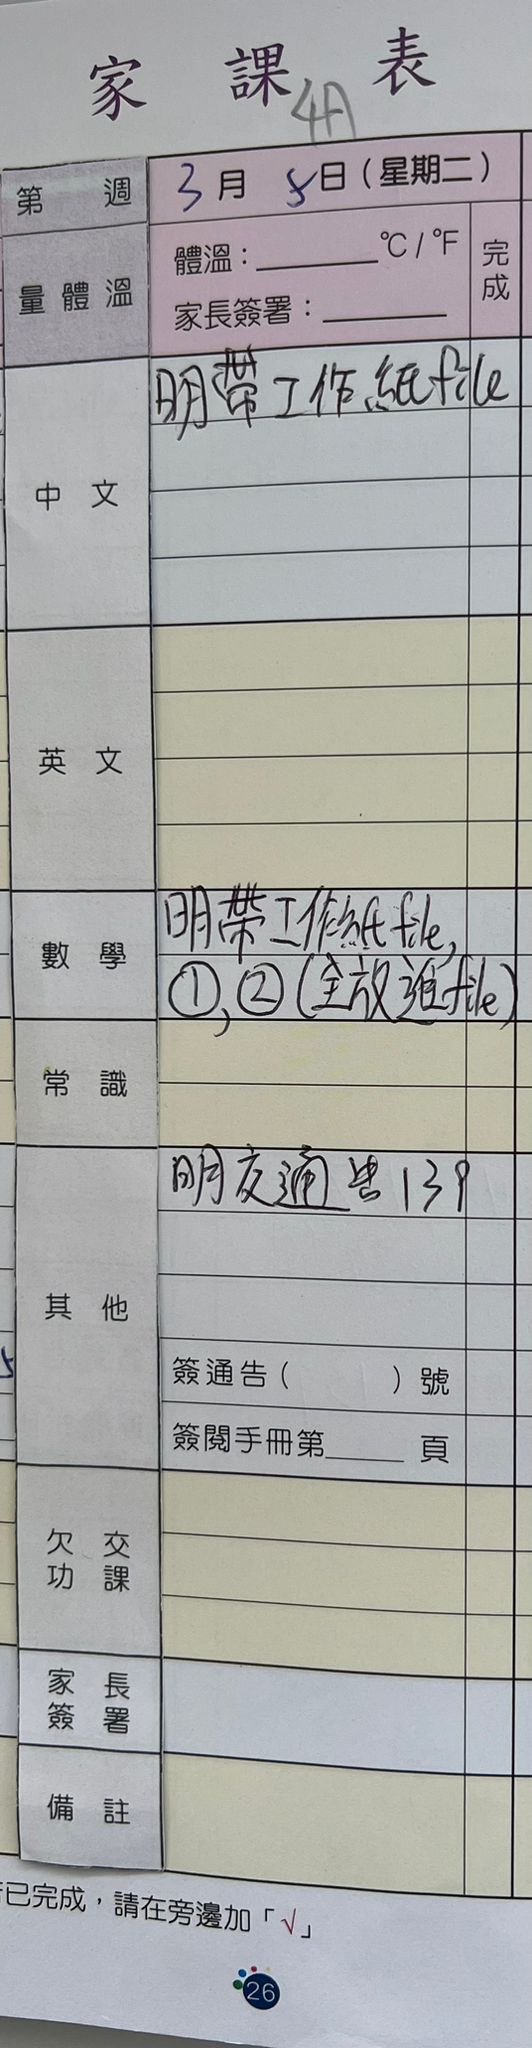 家課表
4A
第 週
3月 5日(星期二)
量體溫
體溫:______°C/°F
家長簽署:______
完成
中文
明帶工作紙file
英文
數學
明帶工作紙file,
①,②(全放進file)
常識
其他
明交通告139
簽通告( )號
簽閱手冊第____頁
欠交功課
家長簽署
備註
已完成,請在旁邊加「√」
26